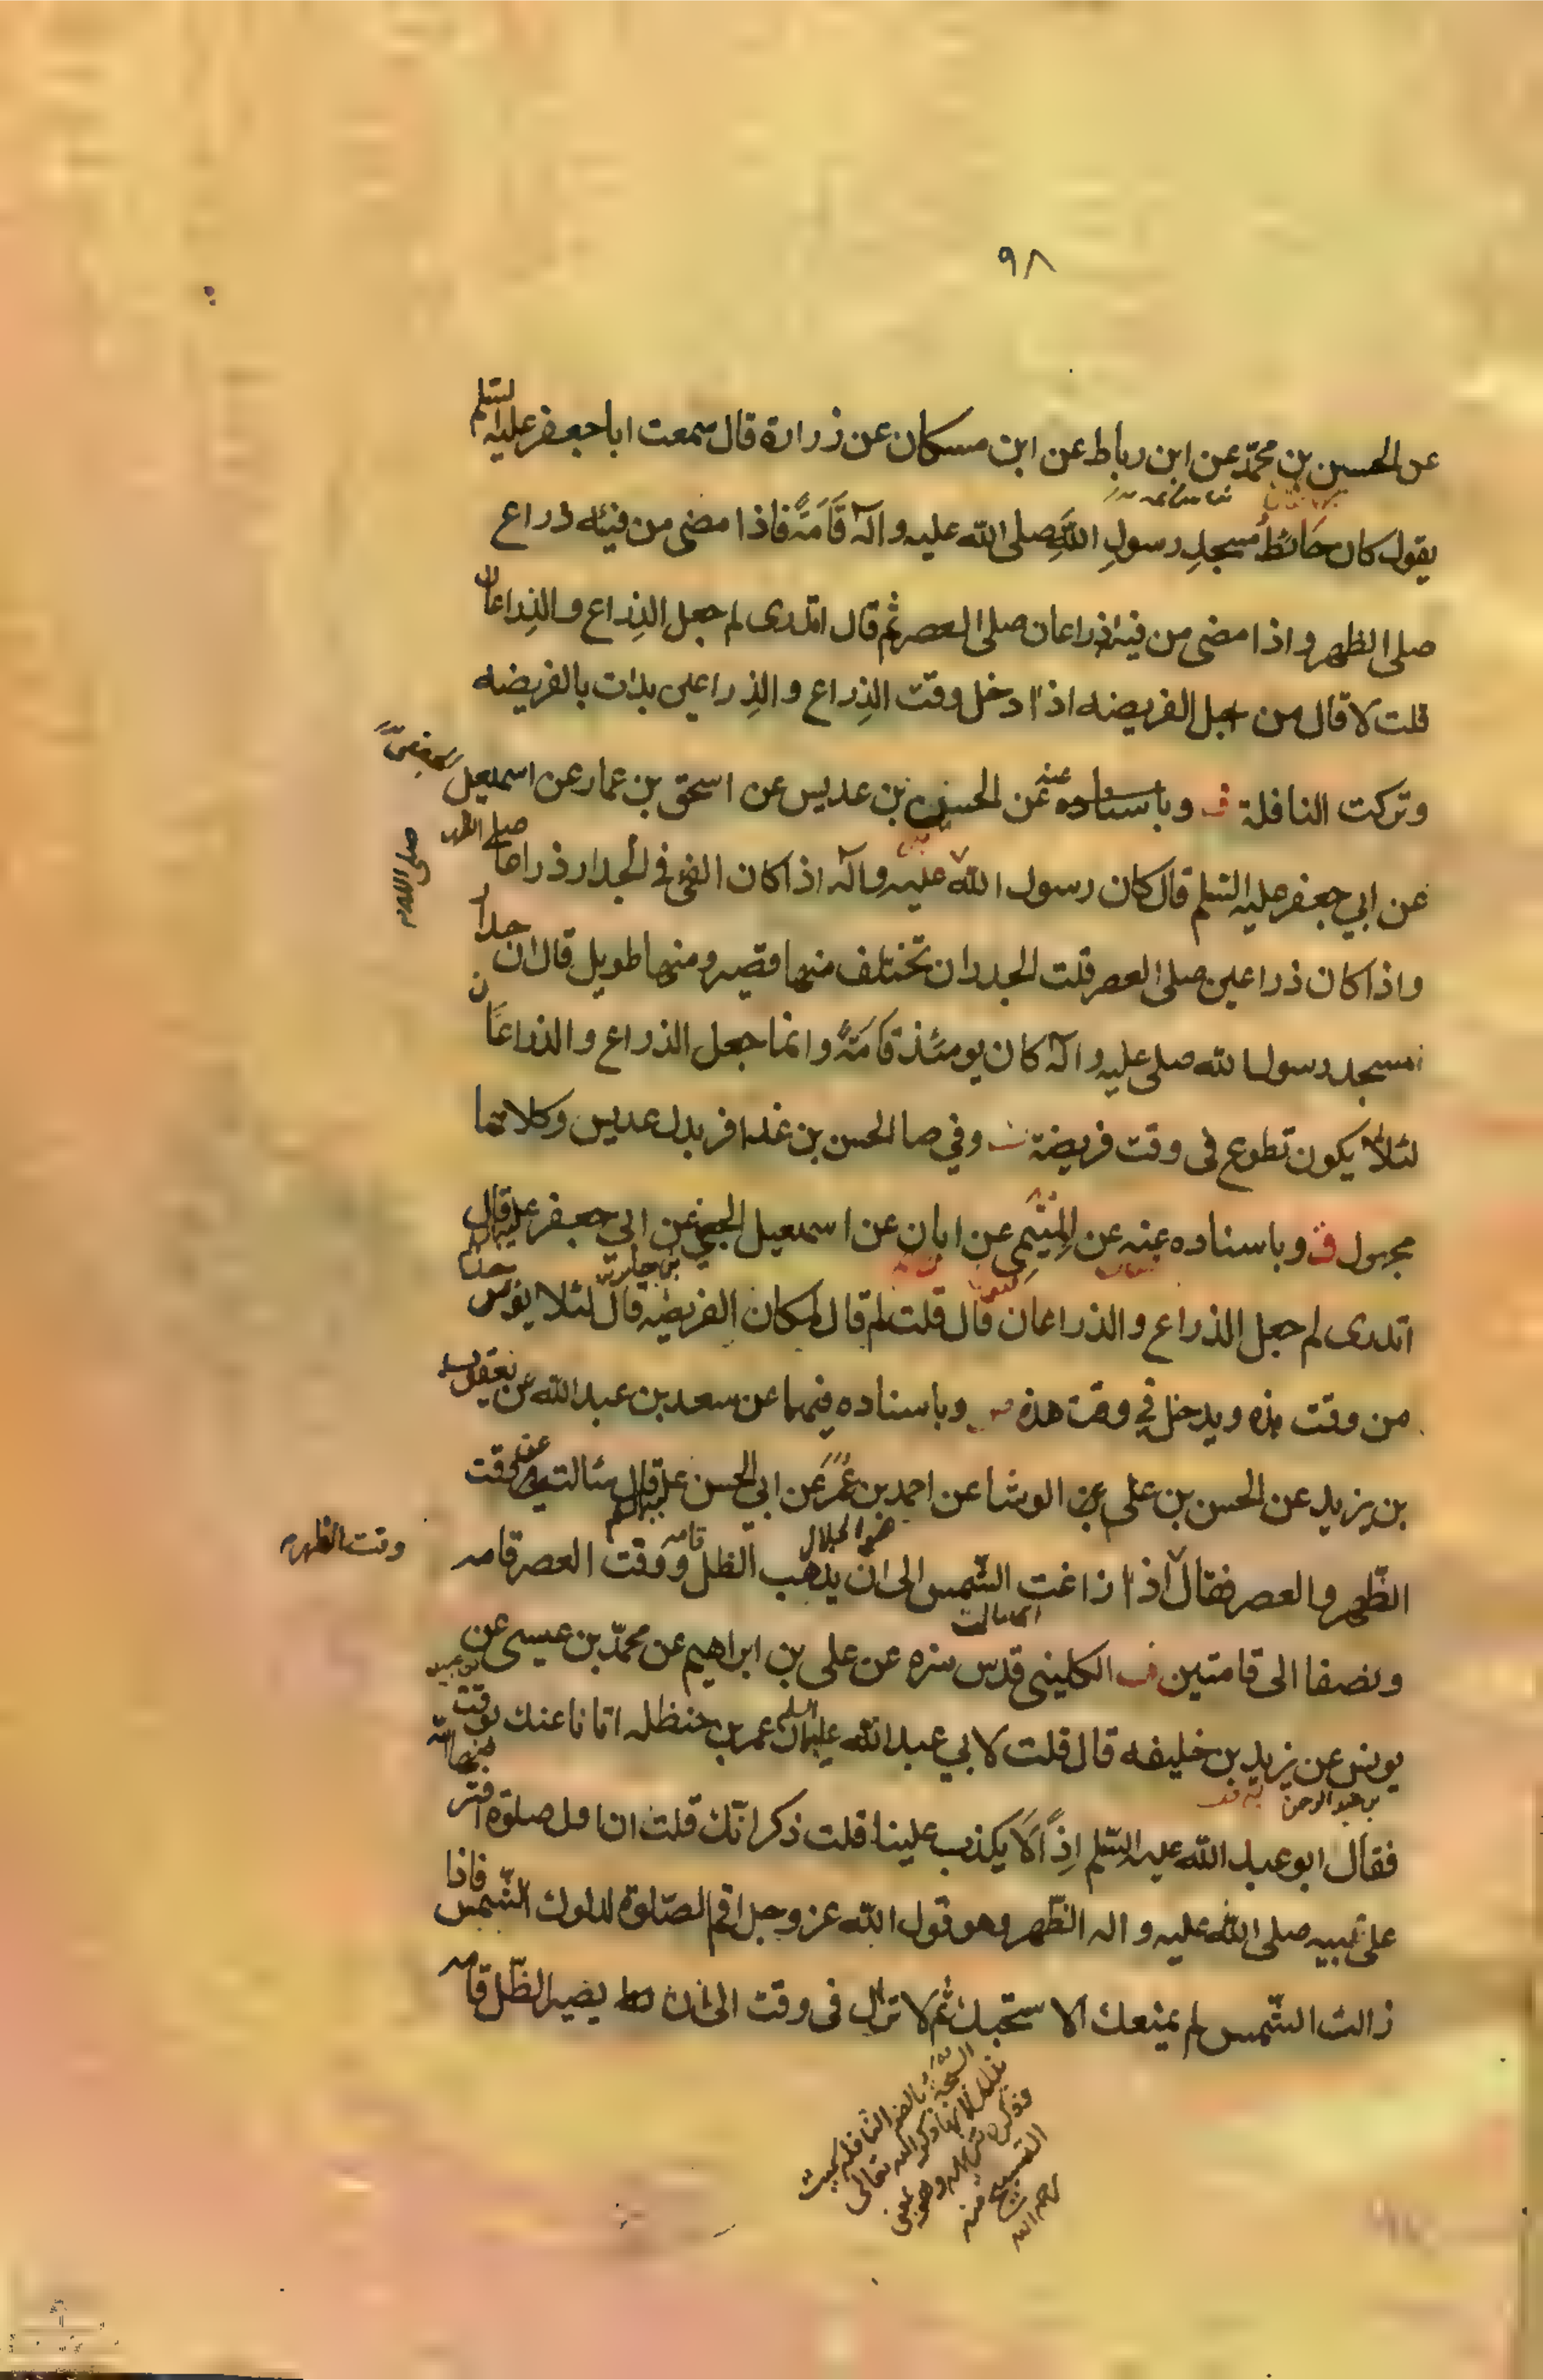 ٩٨
عن الحسين بن محمّد عن ابن رباط عن ابن مسكان عن زرارة قال سمعت ابا جعفر عليه السّلم
يقول كان حَائطُ مسجدِ رسولِ اللهِ صلى الله عليه وآله قَامَةً فاذا مضى من فيئه ذراع
صلى الظهر واذا مضى من فيئه ذراعان صلى العصر ثم قال اتدرى لم جعل الذِراع والذِراعان
قلت لا قال من اجل الفريضه اذا دخل وقت الذِراع والذِراعين بدات بالفريضه
وتركت النافلة وباسناده عنه عن الحسن بن عديس عن اسحق بن عمار عن اسمعيل
عن ابي جعفر عليه السّلم قال كان رسول الله عليه وآله اذا كان الفئ في الجدار ذراعا صلى الظهر
صلى الله
واذا كان ذراعين صلى العصر قلت الجدران تختلف منها قصير ومنها طويل قال ان جدار
مسجد رسول الله صلى عليه وآله كان يومئذ قَامَةً وانما جعل الذراع والذراعان
لئلا يكون تطوع فى وقت فريضة وفي صا الحسن بن غدافر بدل عديس وكلاهما
مجهول ق وباسناده عنه عن الميثمى عن ابان عن اسمعيل الجعفي عن ابي جعفر عليه السلم قال
اتدرى لم جعل الذراع والذراعان قال قلت لم قال لمكان الفريضه قال لئلا يؤخذ
من وقت هذه ويدخل في وقت هذه وباسناده فيهما عن سعد بن عبد الله عن يعقوب
بن يزيد عن الحسن بن على عن الوشا عن احمد بن عُمَر عن ابي الحسن عليه السلم قال سئالته عن وقت
وقت الظهر
الظّهر والعصر فقال اذا زاغت الشّمس الى ان يذهب الظل قامه ووقت العصر قامه
ونصفا الى قامتين الكلينى قدس سره عن على بن ابراهيم عن محمّد بن عيسى عن
يونس عن يزيد بن خليفه قال قلت لابي عبد الله عليه السلم ان عمر بن حنظله اتانا عنك بوقت
بن عبد الرحمن
فقال ابو عبد الله عليه السّلم اِذاً لَا يكذب علينا قلت ذكر انّك قلت ان اول صلوة افتر
على نبيه صلى الله عليه واله الظّهر وهو قول الله عز وجل اقم الصّلوة لدلوك الشّمس فاذا
زالت الشّمس لم يمنعك الا سبحتك ثم لا تزال فى وقت الى ان يصير الظّل قامه
السّبحة بالضم النافله